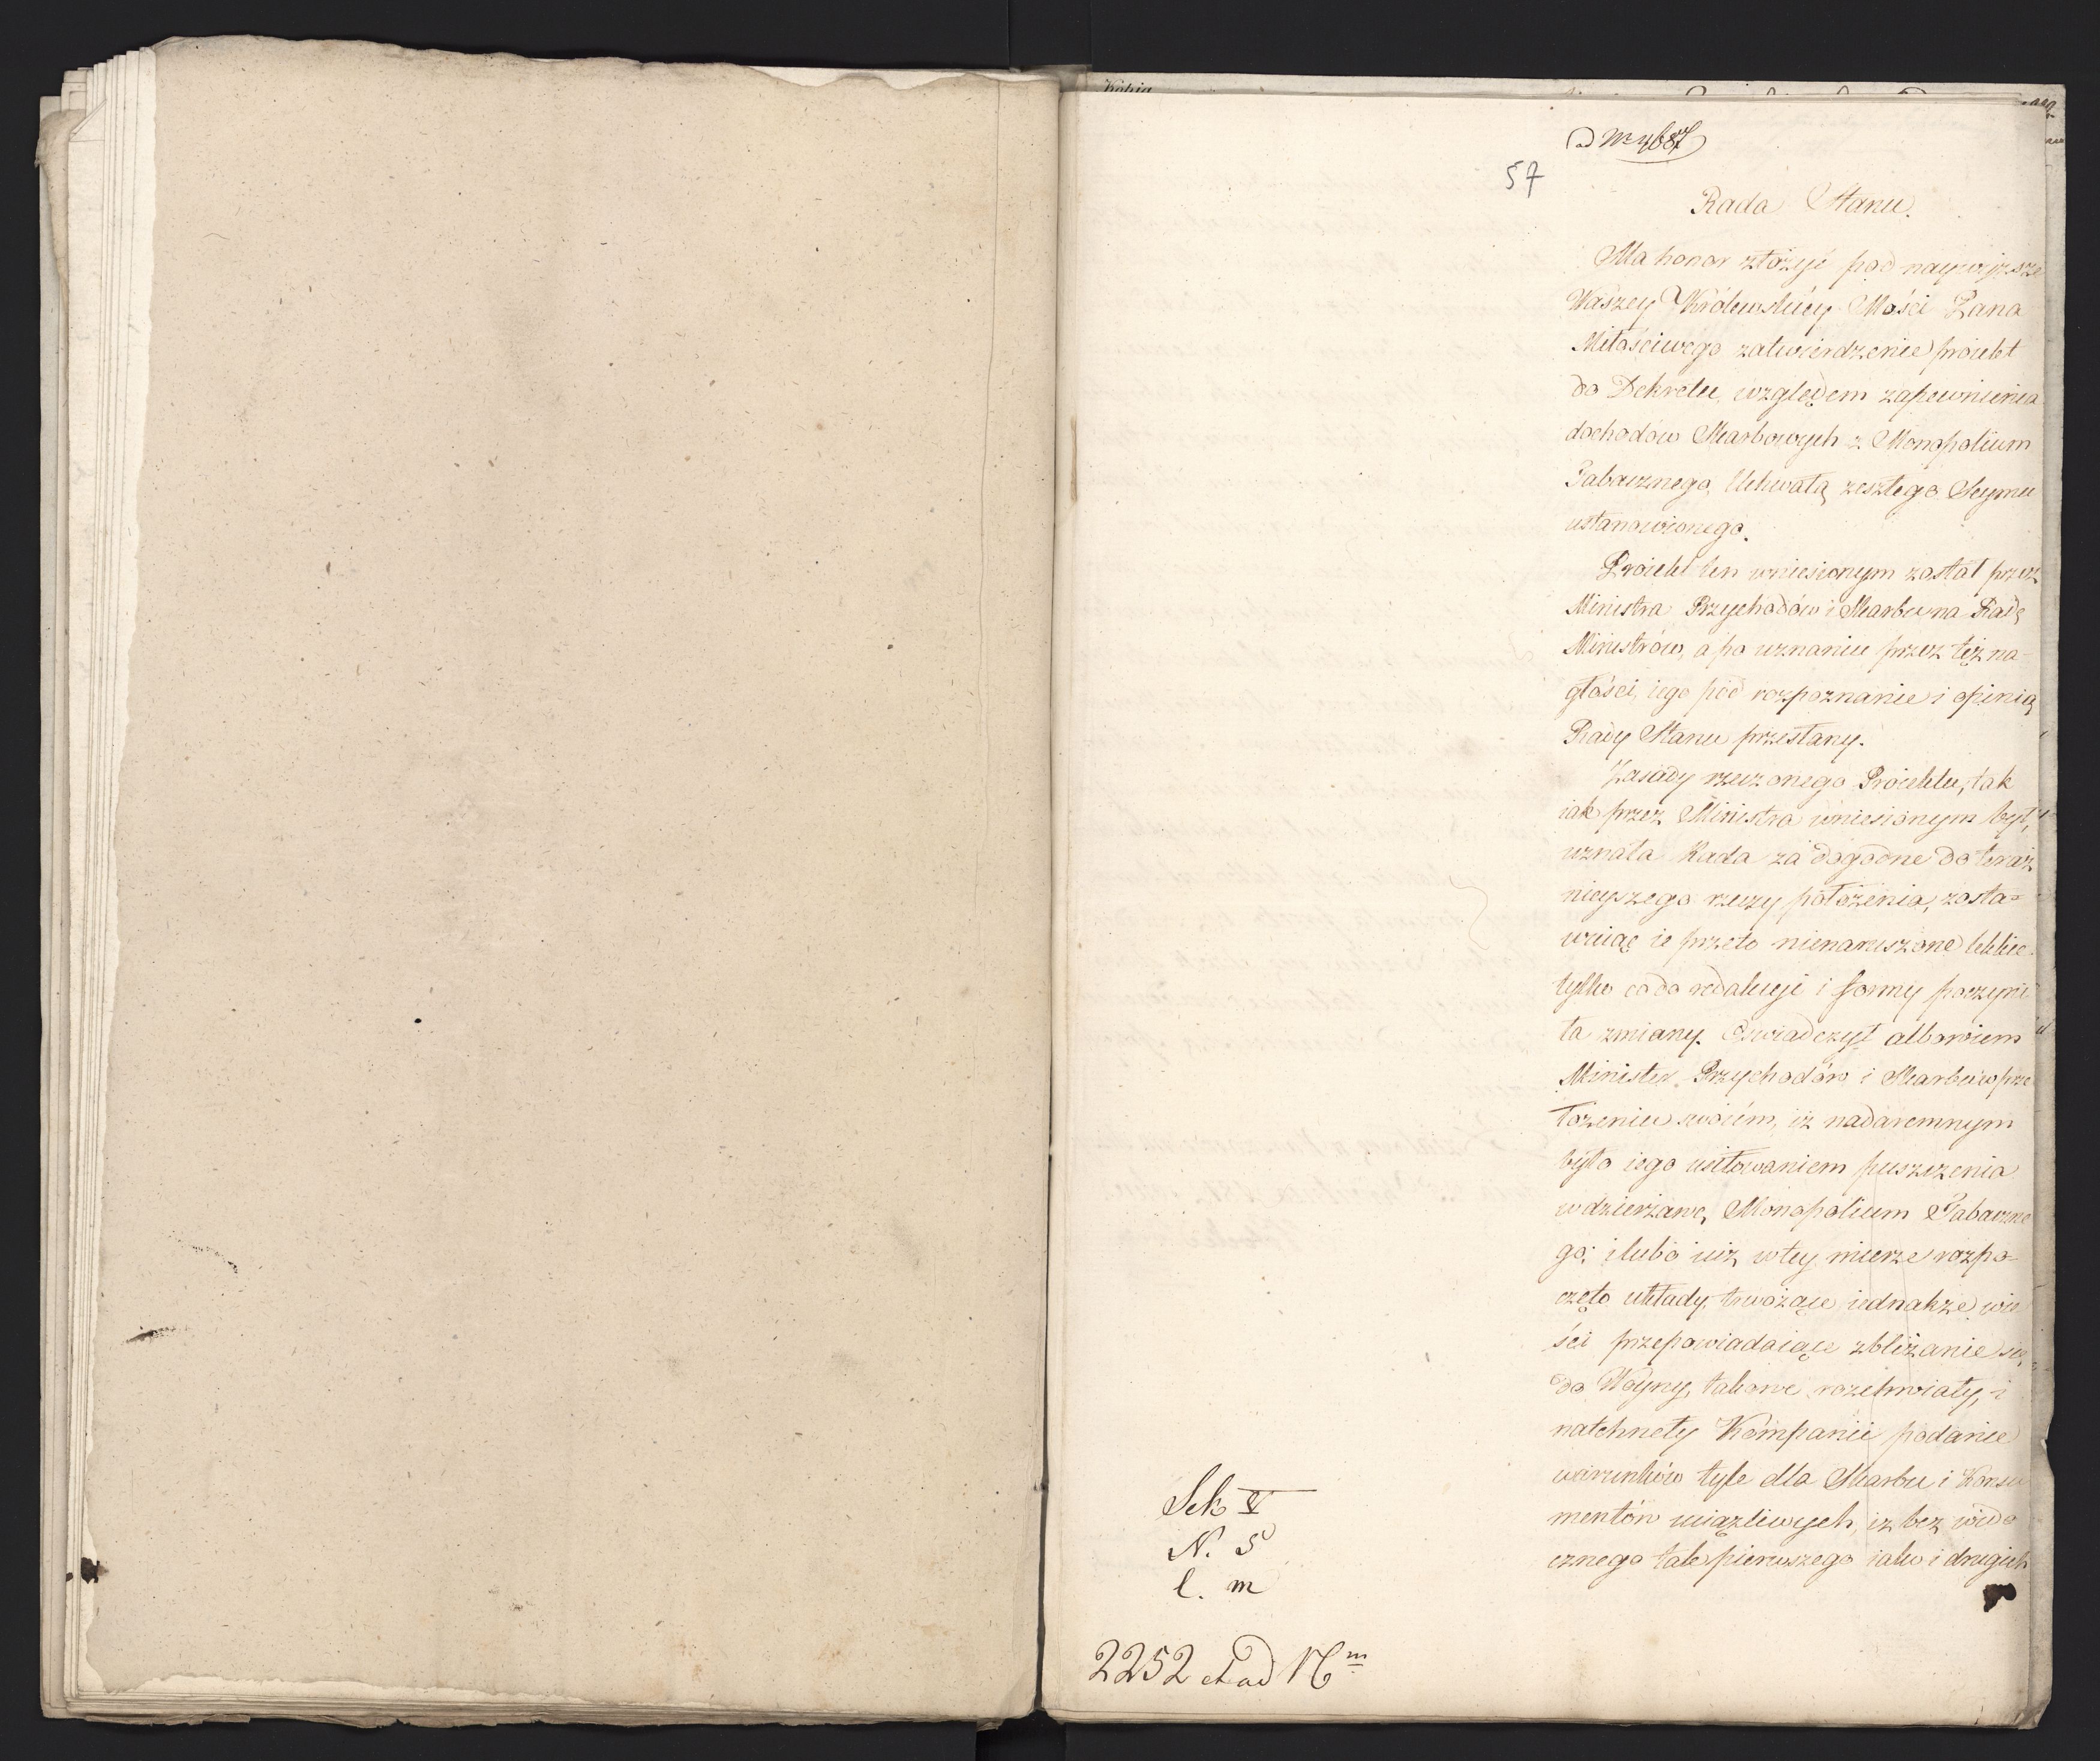 ad Nr 4687
57
Rada Stanu.
Ma honor złożyć pod naywyższe
Waszey Królewskiéy Mości Pana
Miłościwego zatwierdzenie proiekt
do Dekretu, względem zapewnienia
dochodów Skarbowych z Monopolium
Tabacznego, Uchwałą zeszłego Seymu
ustanowionego.
Proiekt ten wniesionym został przez
Ministra Przychodów i Skarbu na Radę
Ministrów, a po uznaniu przez też na-
głości, iego pod rozpoznanie i opinią
Rady Stanu przesłany.
Zasady rzeczonego Proiektu, tak
iak przez Ministra wniesionym był,
uznała Rada za dogodne do teraź
nieyszego rzeczy położenia, zosta=
wuiąc ie przeto nienaruszone
tylko co do redakcyi i formy poczyni
ła zmiany. Oświadczył albowiem
Minister Przychodów i Skarbu w prze
łożeniu swoiém, iż nadaremnym
było iego usiłowaniem puszczenia
w dzierżawę, Monopolium Tabaczne
go; i lubo iuż w tey mierze rozpo-
częto układy, trwożące iednakże wie
ści przepowiadaiące zbliżanie się
do Woyny, takowe rozchwiały, i
natchnęły Kompanii podanie
warunków tyle dla Skarbu i Konsu
mentów uciążliwych, iż bez wido
cznego tak pierwszego iako i drugich
Sek V
N. 5
l. m
2252 et ad N m